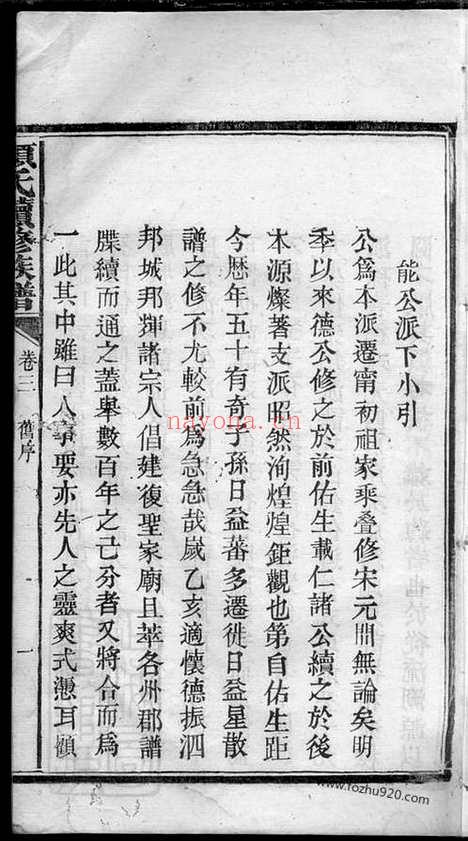 能公派下小引
公爲本派遷甯初祖家乘叠修宋元間無論矣明
季以來德公修之於前佑生載仁諸公續之於後
本源燦著支派昭然洵煌煌鉅觀也第自佑生距
今歷年五十有奇子孫日益蕃多遷徙日益星散
譜之修不尤較前爲急急哉歲乙亥適懷德振泗
邦城邦輝諸宗人倡建復聖家廟且萃各州郡譜
牒續而通之蓋舉數百年之已分者又將合而爲
一此其中雖曰人事要亦先人之靈爽式憑耳顧
顏氏續修族譜
卷三
舊序
一
nayona.cn
www.fozhu920.com